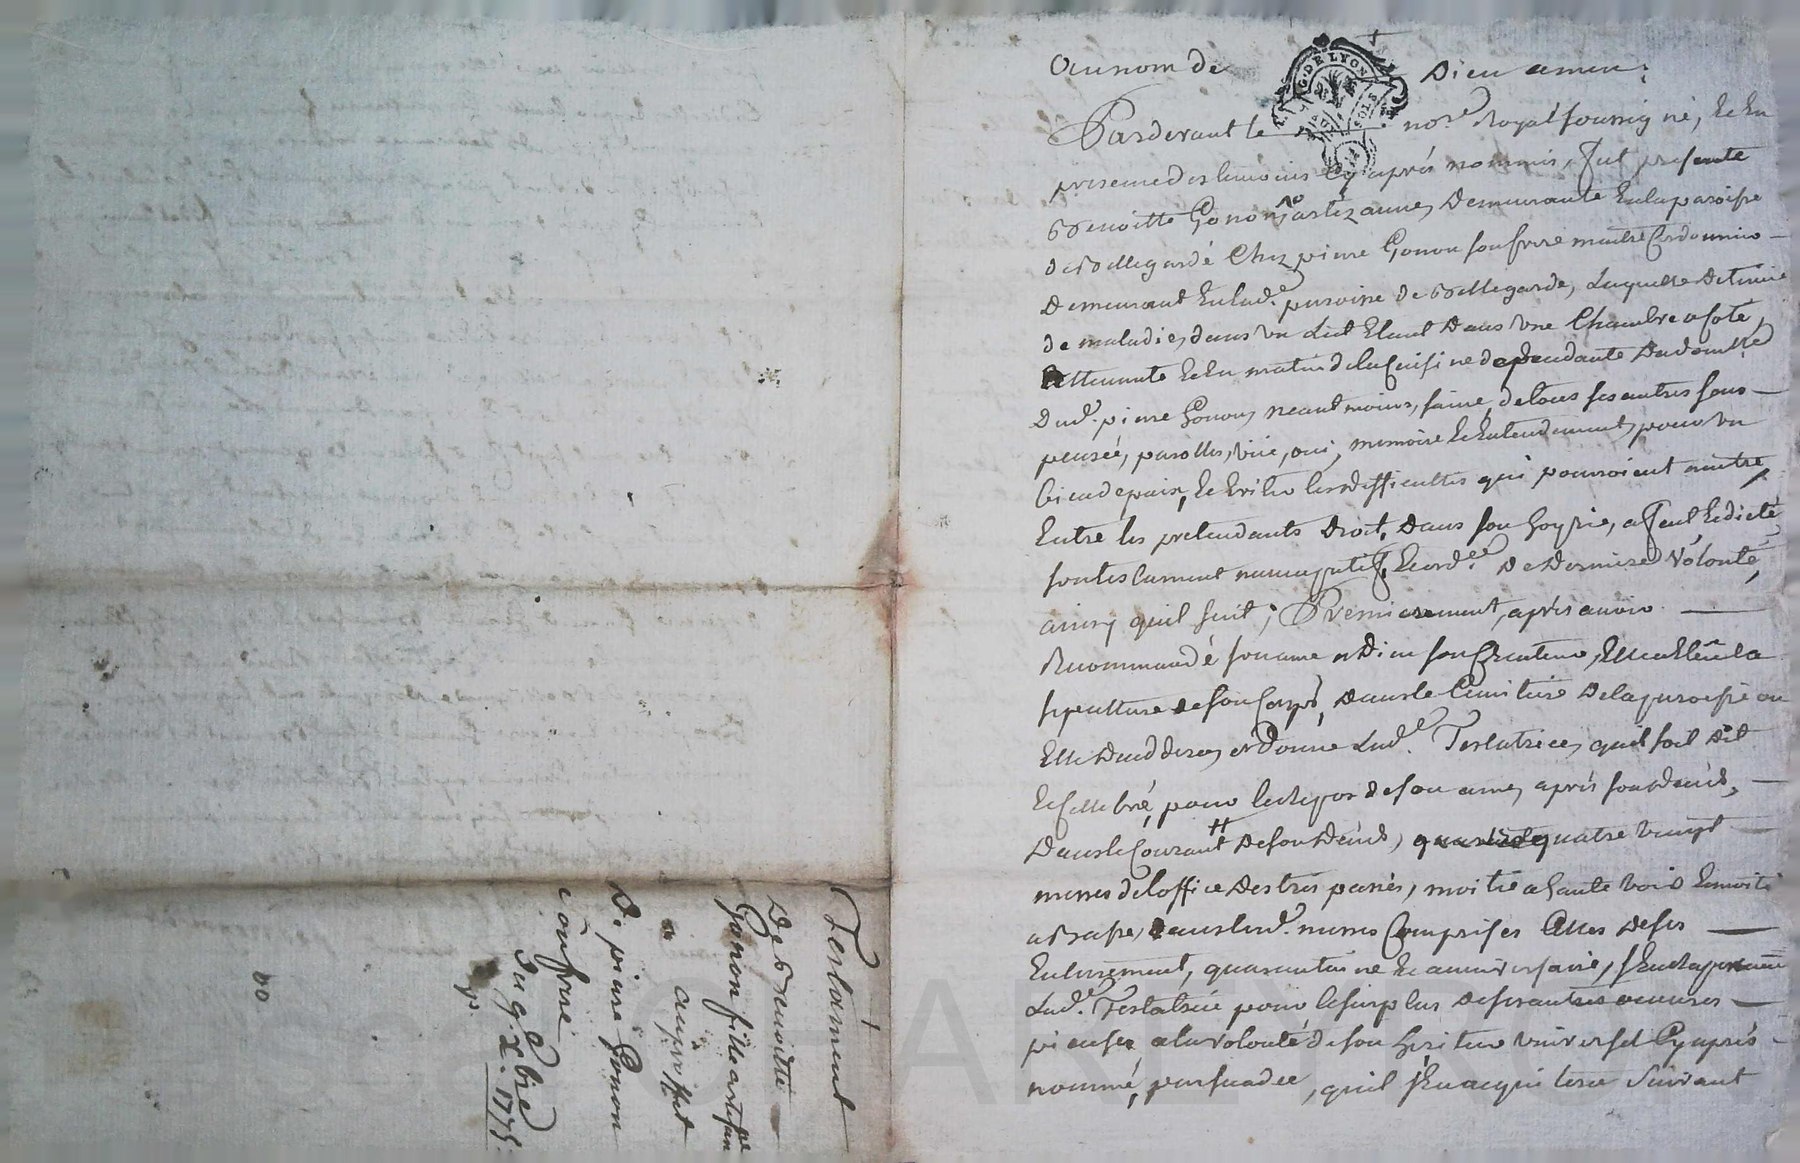 Au nom de Dieu amen;
G. DE LYON
SOLS
Pardevant le no.re Royal soussigné, & En
presence des temoins Cy après nommés, fut presente
Benoitte Gonon artizanne, Demeurante En la paroisse
de Bellegarde Chez pierre Gonon son frere maitre Cordonnier
Demeurant En lad.e paroisse de Bellegarde, Laquelle Detenue
de maladie, dans un Lict Etant Dans une Chambre a Coté,
Attenante & En matin de la Cuisine dependante du domicille
Dud. pierre Gonon, neant moins, saine de tous ses autres sens
pensée, parolles, vüe, oui, memoire & Entendement, pour un
bien de paix, & Eviter les difficultes qui pourroient naitre,
Entre les pretendants Droit, Dans son hoyrie, a fait, & dicté
son testament nuncupatif, & ord.ce De Derniere Volonté,
ainsy quil suit; Premierement, après avoir
Recommandé son ame a Dieu son Createur, Elle a Elû la
sepulture de son Corps, Dans le Cimitiere De la paroisse ou
Elle Deceddera, ordonne Lad.e Testatrice, quil soit dit
& Cellebré, pour le repos de son ame, après son Decés,
Dans le Courant De son Decés, quatre vingt
messes de l'office Des trepassés, moitié a haute voix & moitié
a Basse, Dans lesd. messes Comprises Celles De ses
Enterrement, quarantaine & anniversaire, s'En rapporte
Lad.e Testatrice pour le surplus De ses autres oeuvres
pieuses, a la volonté de son heritier universel Cy après
nommé, persuadée, quil s'En acquittera Suivant
Testament
De Benoitte
Gonon fille artisan.ne
au proffit
De pierre Gonon
son frere
Du 9.e Xbre 1775.
CHAREYRON